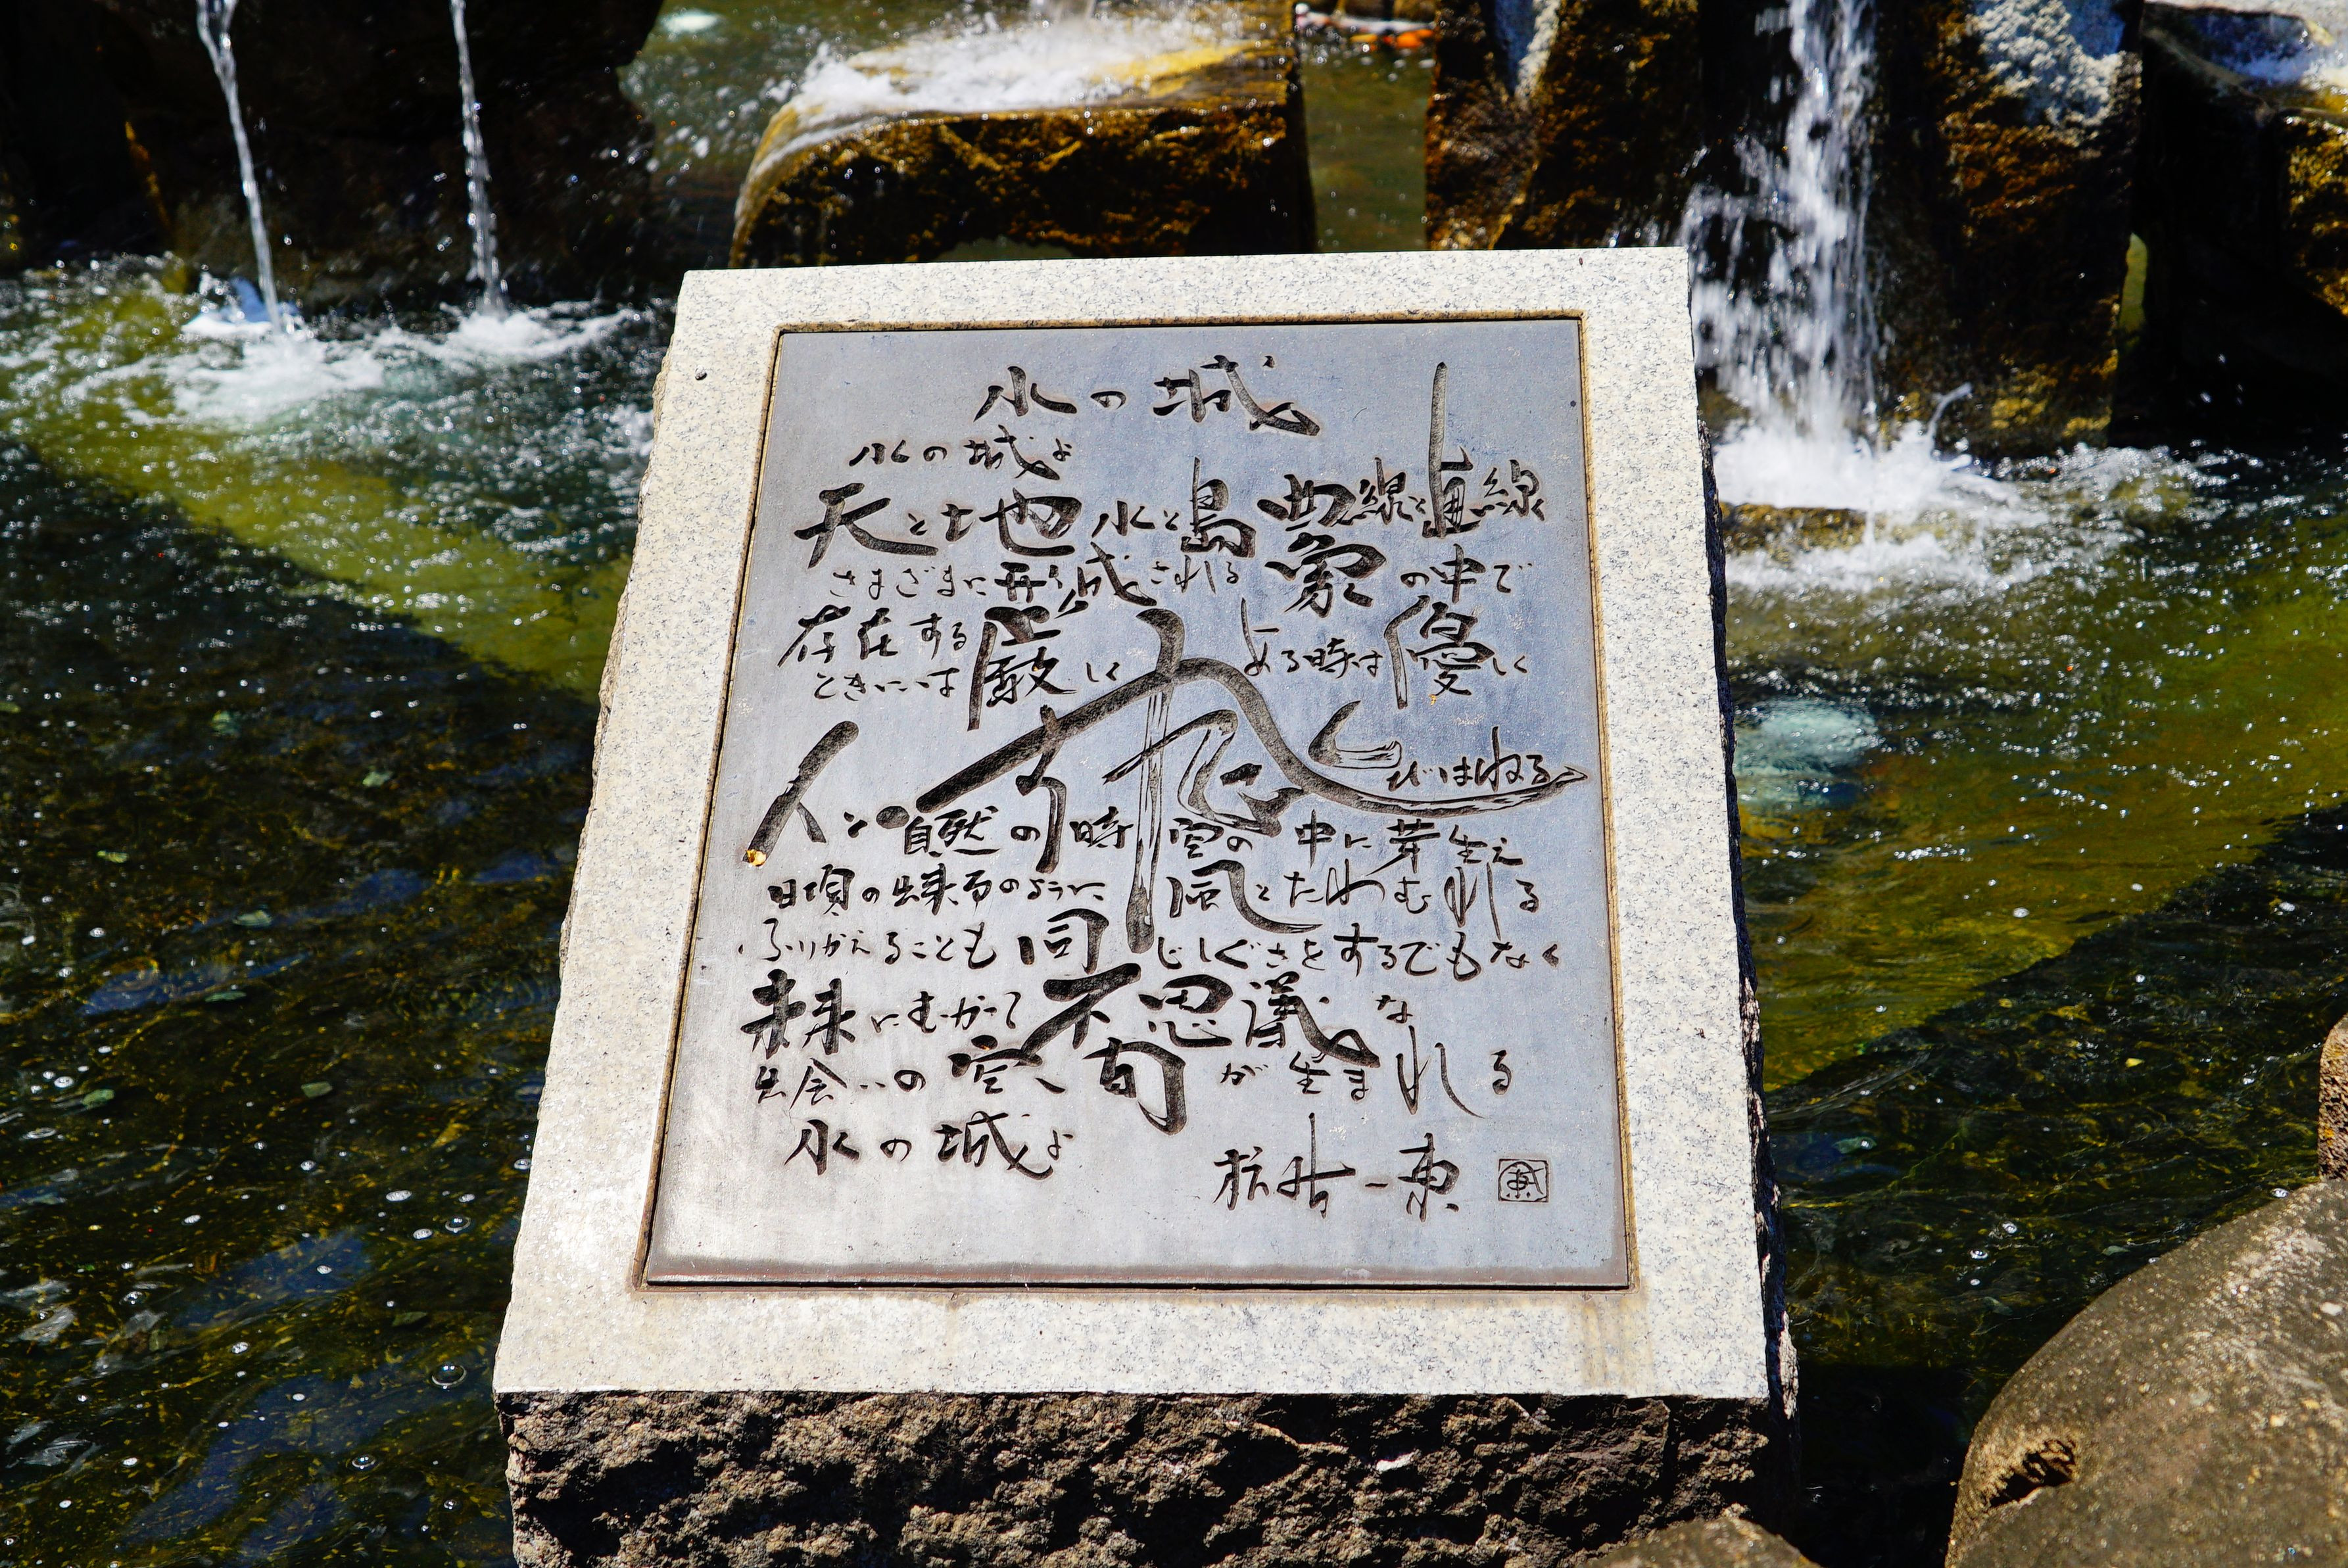 水の城
水の城よ
天と地 水と島 曲線と直線
さまざまに形成される 象の中で
存在する
ときには厳しく ある時は優しく
飛びはねる
自然の時空の中に芽生え
日頃の出来事のように 風とたわむれる
ふりかえることも同じしぐさをするでもなく
未来にむかって 不思議な
出会いの空、旬が生まれる
水の城よ
一東